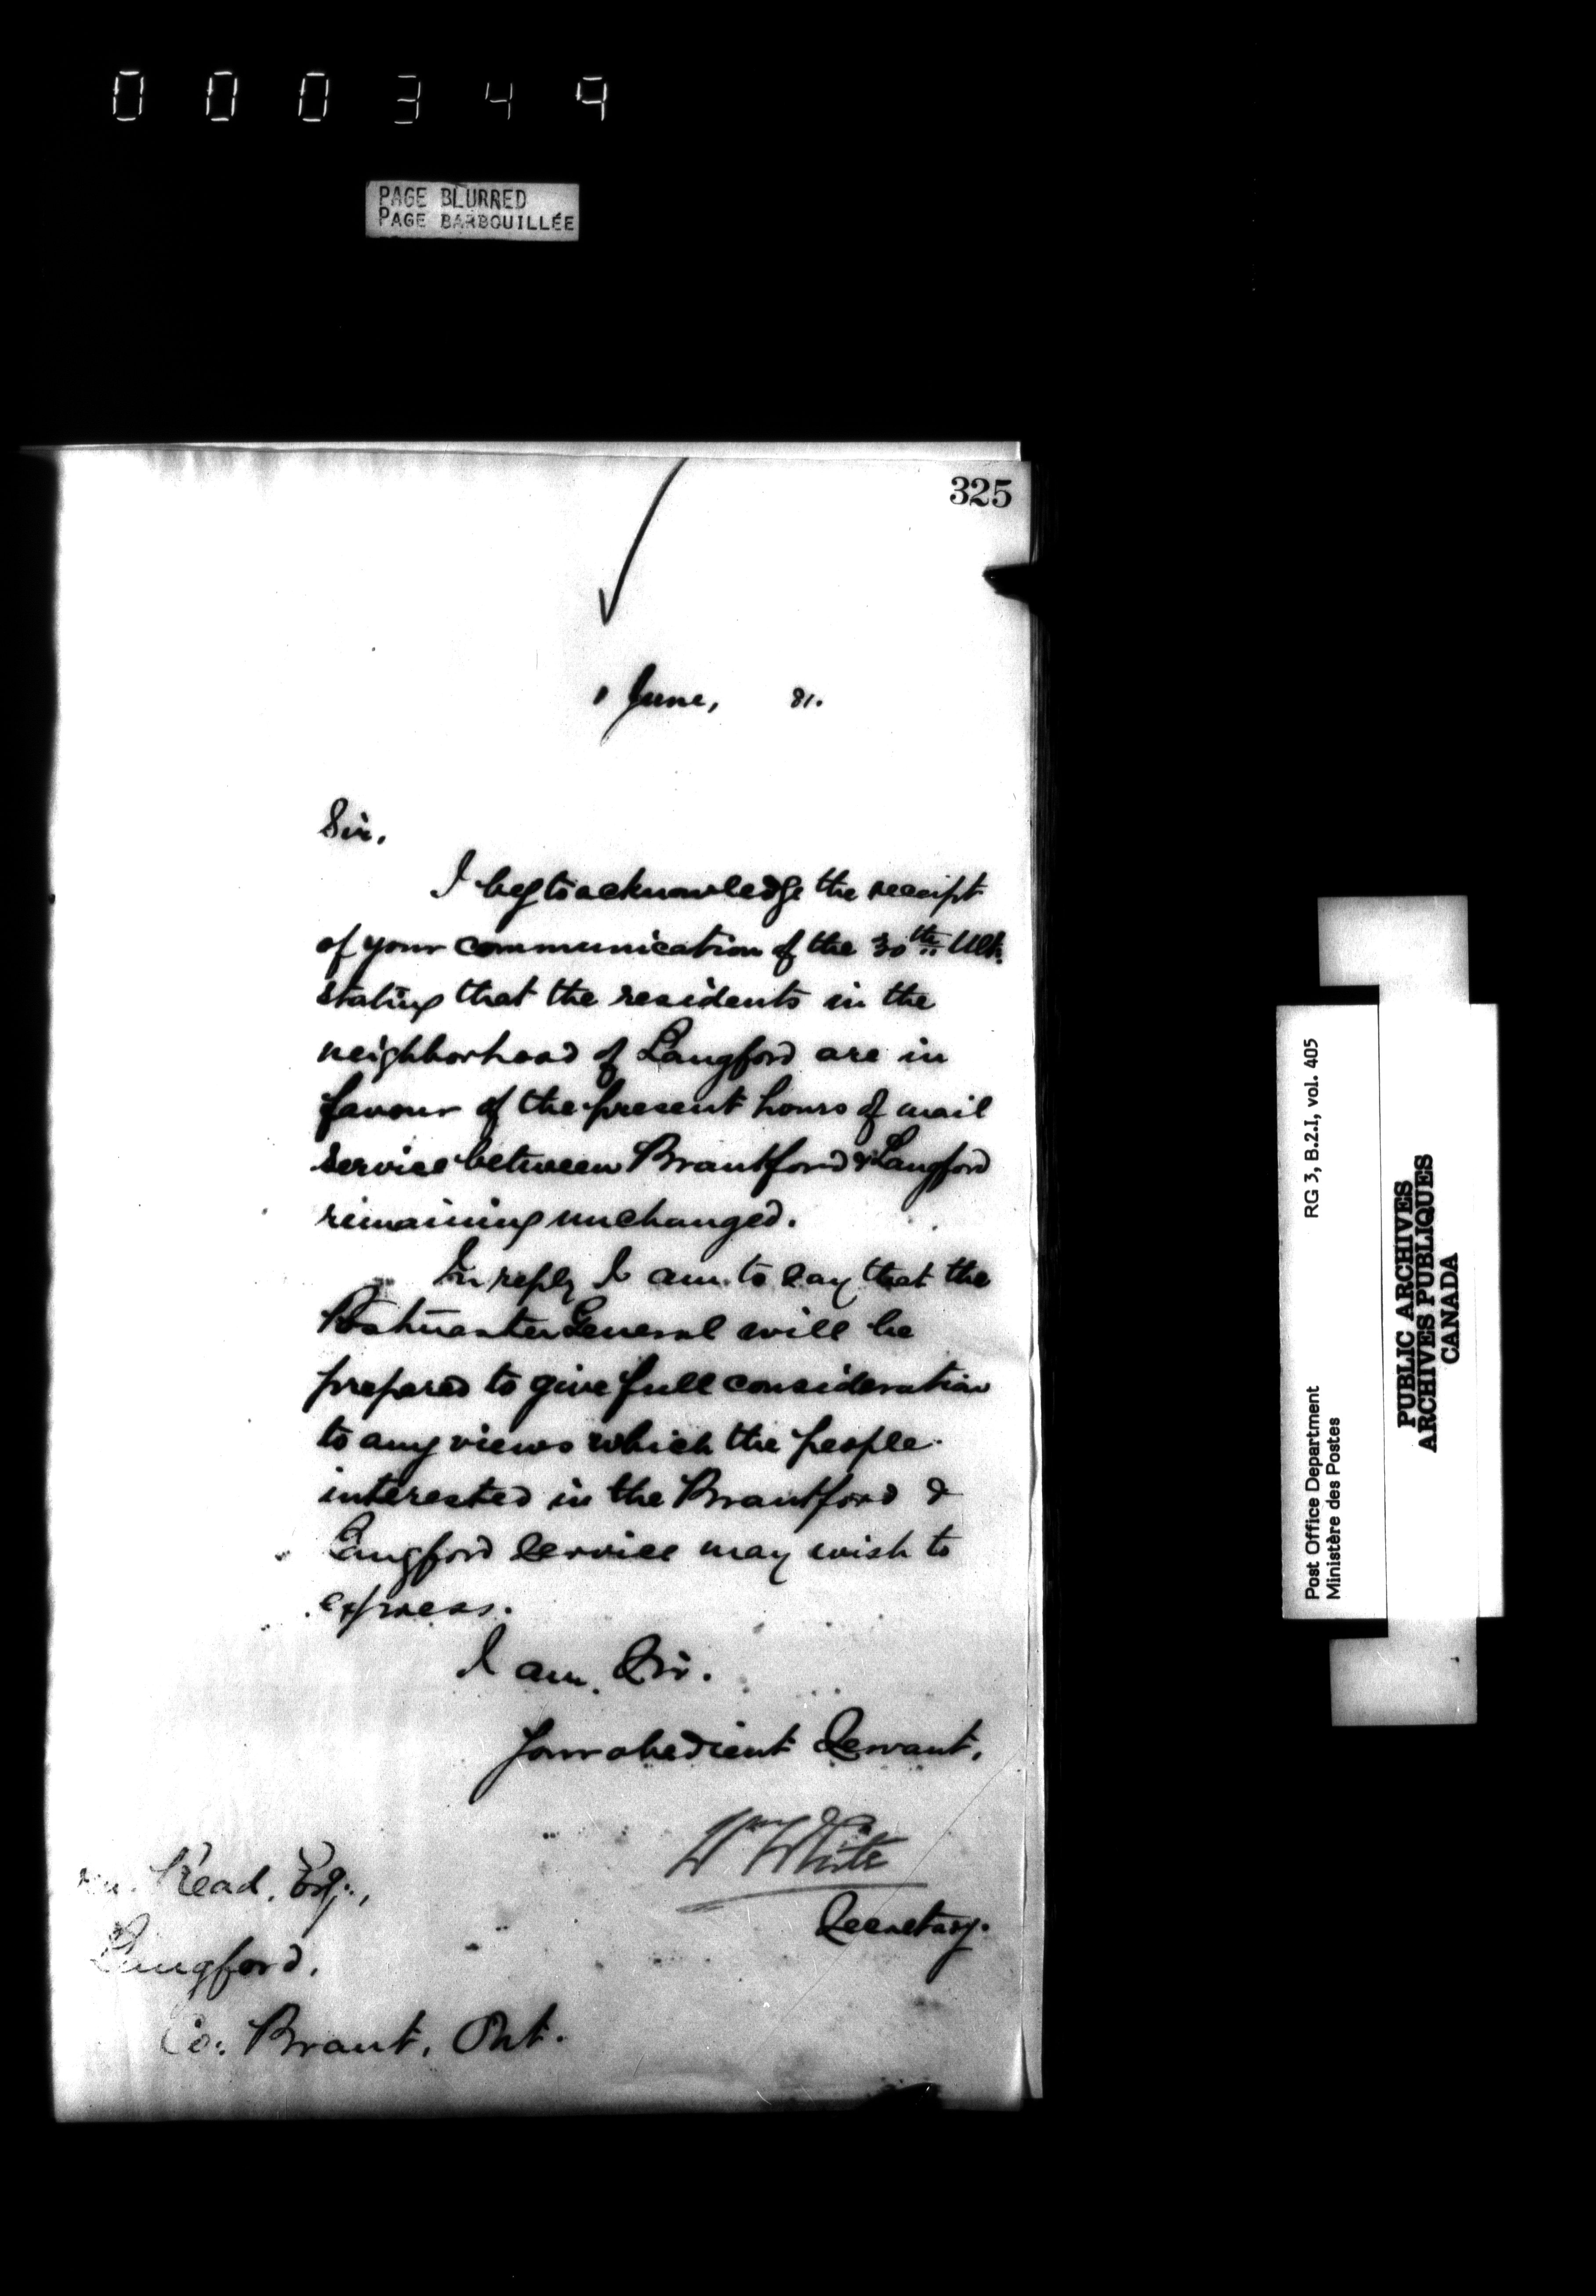 000349
PAGE BLURRED
PAGE BARBOUILLÉE
325
1 June, 81.
Sir,
I beg to acknowledge the receipt
of your communication of the 30th Ult.
stating that the residents in the
neighborhood of Langford are in
favour of the present hours of mail
service between Brantford & Langford
remaining unchanged.
In reply I am to say that the
Postmaster General will be
prepared to give full consideration
to any views which the people
interested in the Brantford &
Langford Service may wish to
express.
I am, Sir.
Your obedient Servant,
Wm White
Secretary.
Read, Esq.,
Langford,
Co: Brant, Ont.
Post Office Department RG 3, B.2.I, vol. 405
Ministère des Postes
PUBLIC ARCHIVES
ARCHIVES PUBLIQUES
CANADA